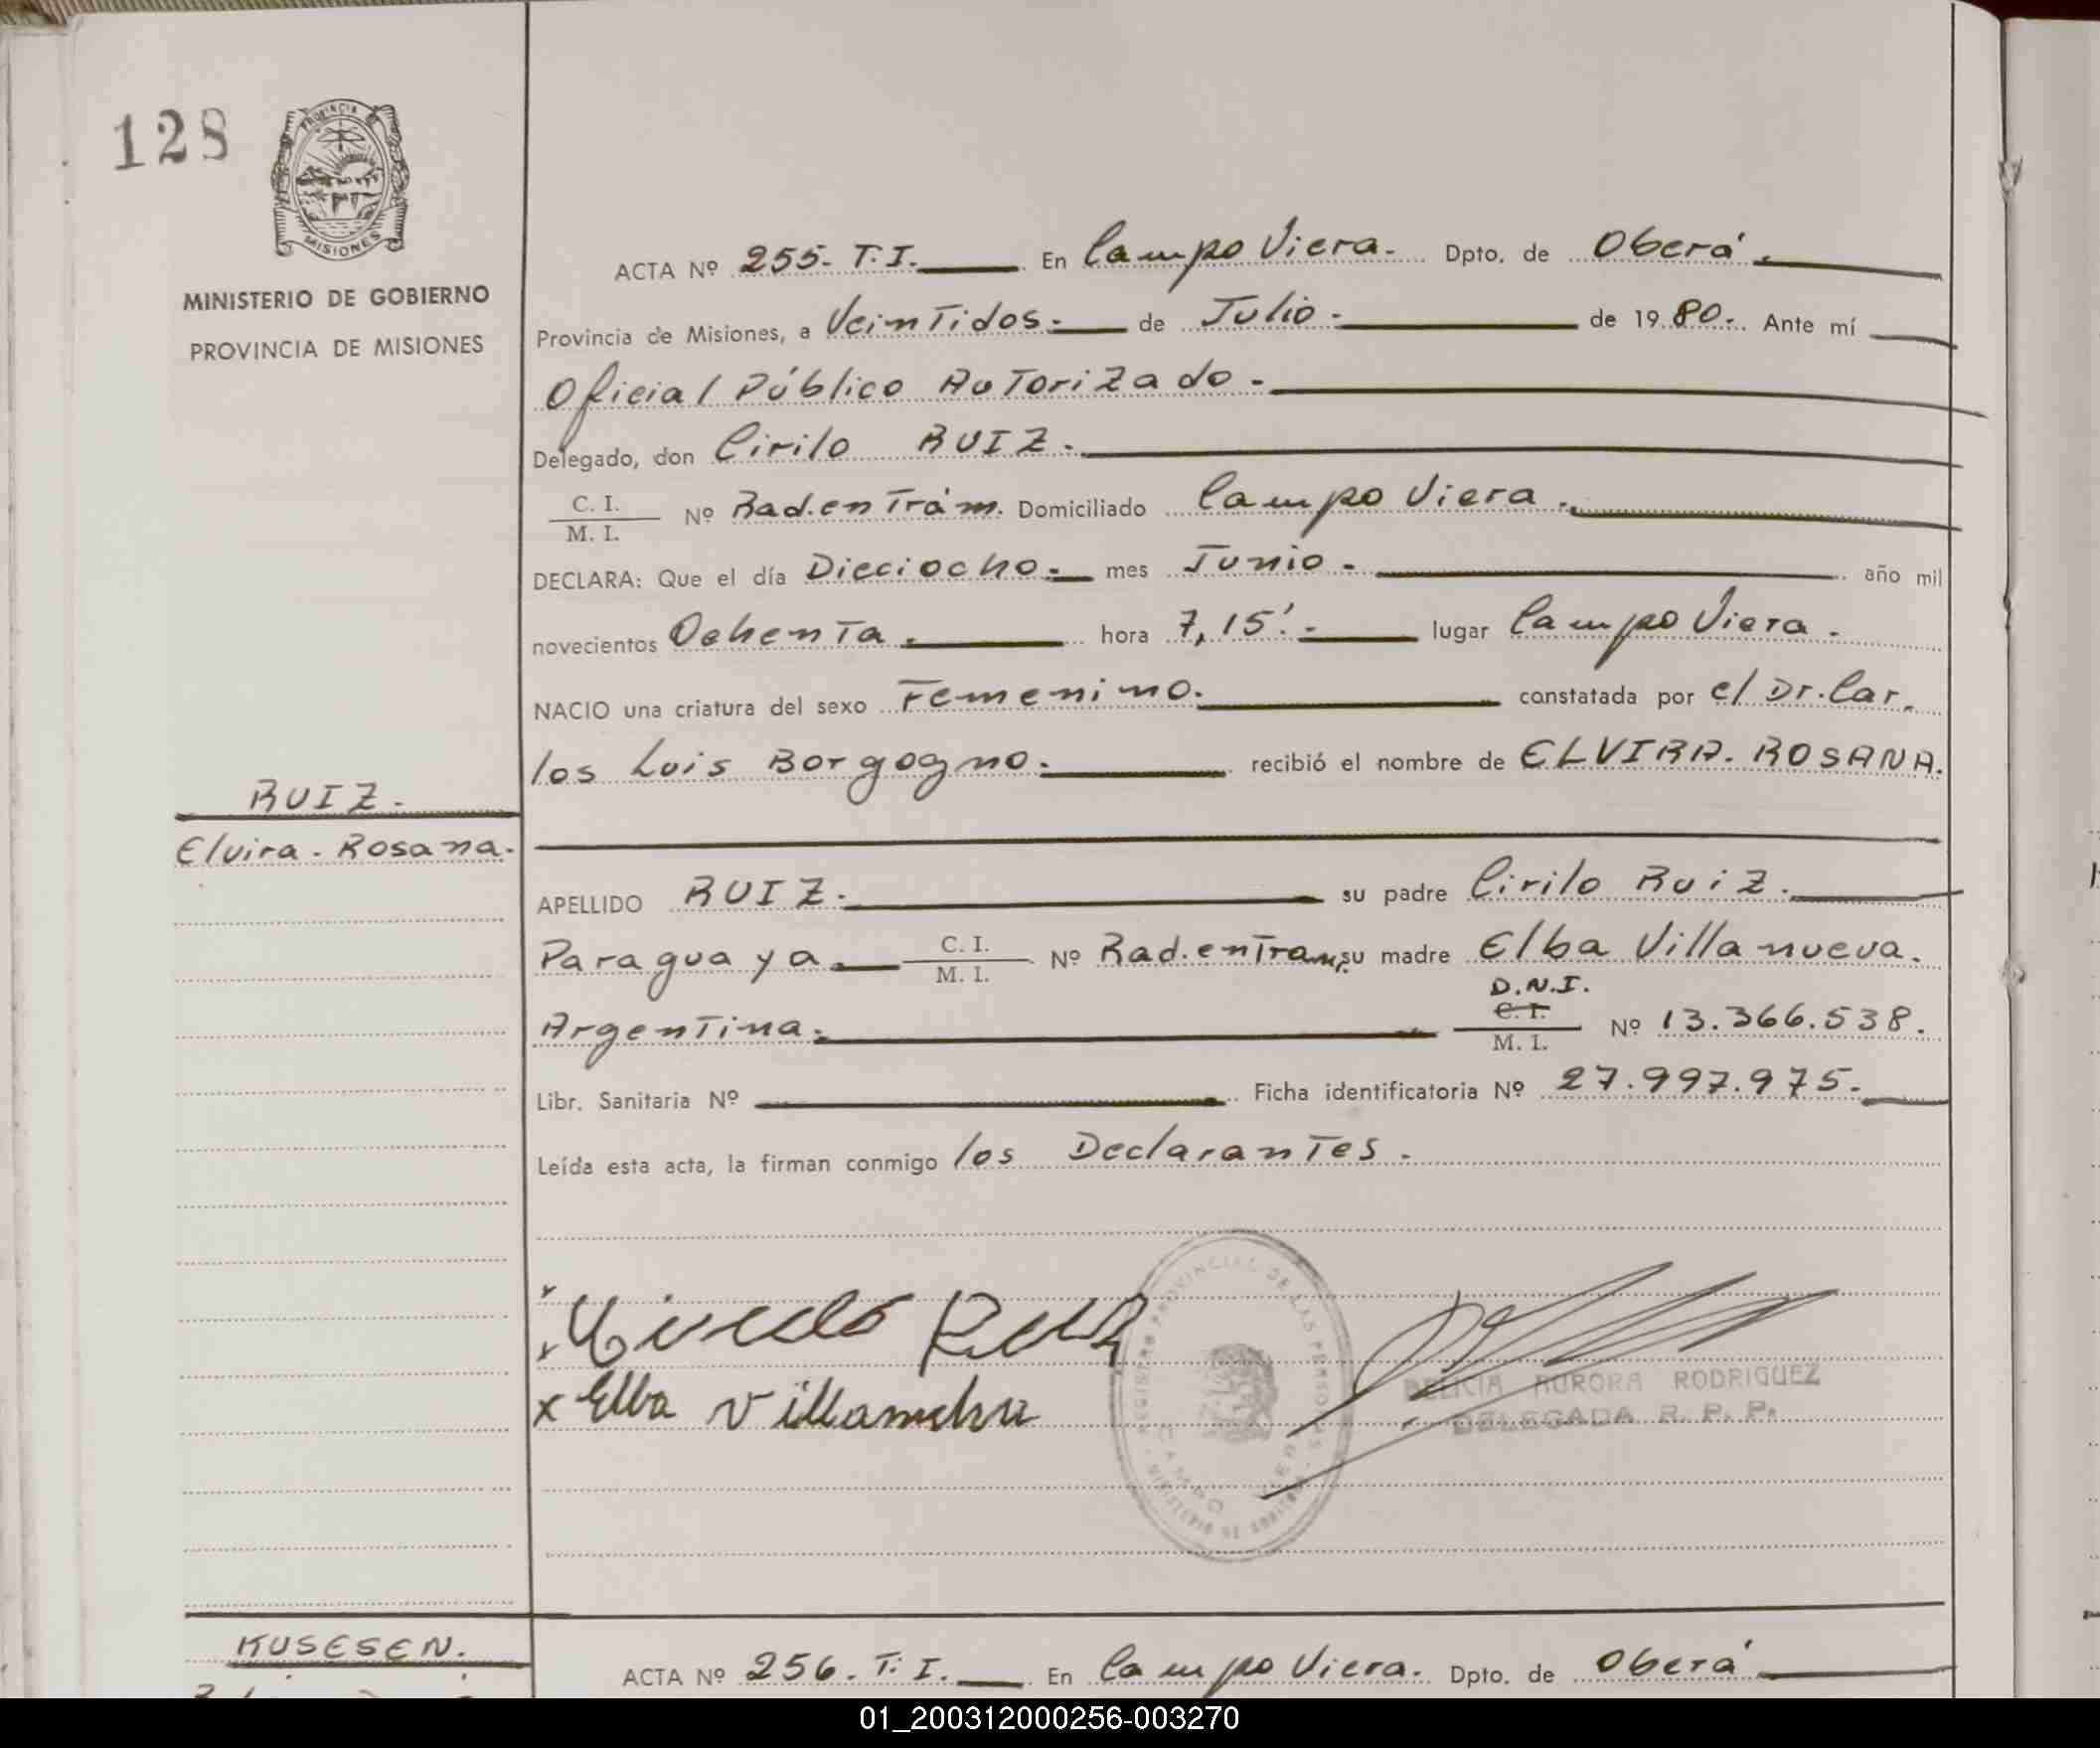 128
PROVINCIA DE
MISIONES
MINISTERIO DE GOBIERNO
PROVINCIA DE MISIONES
ACTA Nº 255. T.I. En Campo Viera. Dpto. de Oberá.
Provincia de Misiones, a Veintidos. de Julio. de 1980. Ante mí
Oficial Público Autorizado.
Delegado, don Cirilo RUIZ.
C. I.
M. I. Nº Rad.en Trám. Domiciliado Campo Viera.
DECLARA: Que el día Dieciocho. mes Junio. año mil
novecientos Ochenta. hora 7,15'. lugar Campo Viera.
NACIO una criatura del sexo Femenino. constatada por el Dr. Car.
los Luis Borgogno. recibió el nombre de ELVIRA. ROSANA.
RUIZ.
Elvira. Rosana.
APELLIDO RUIZ. su padre Cirilo Ruiz.
Paraguaya. C. I.
M. I. Nº Rad.en Tram, su madre Elba Villanueva.
D.N.I.
Argentina. C. I.
M. I. Nº 13.366.538.
Libr. Sanitaria Nº Ficha identificatoria Nº 27.997.975.
Leída esta acta, la firman conmigo los Declarantes.
Ruiz
x Elba Villanueva
REGISTRO PROVINCIAL DE LAS PERSONAS
MINISTERIO DE GOBIERNO
CAMPO VIERA
DELICIA AURORA RODRIGUEZ
DELEGADA R. P. P.
KUSESEN.
ACTA Nº 256. T. I. En Campo Viera. Dpto. de Oberá
01_200312000256-003270